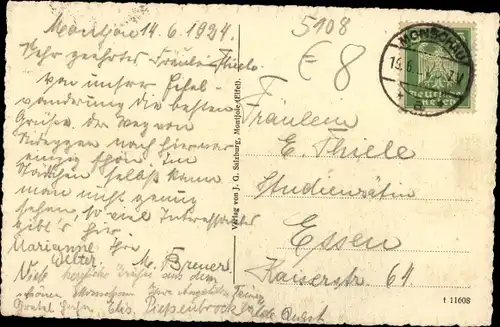 Montjoie 14.6.1924.
Sehr geehrtes Fräulein Thiele
von unserer Eifel-
wanderung die besten
Grüsse. Der Weg von
Nideggen nach hier war
einzig schön. Im
Städtchen selbst kann
man nicht genug
sehen, so viel Interessantes
gibt's hier.
Marianne Ihre
M. Breuer
Viele herzliche Grüsse aus dem
schönen Monschau Ihre
5108
€ 8
MONSCHAU
Deutsches
Reich
Fräulein
E. Thiele
Studienrätin
Essen
Kaiserstr. 64.
Verlag von J. G. Salzburg, Montjoie (Eifel).
t 11608